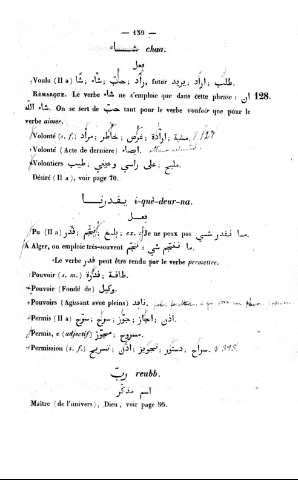 — 139 —
شاء chaa.
فعل
Voulu (Il a) شا; شاء; حبّ; راد, futur يريد; اراد; طلب.
REMARQUE. Le verbe شاء ne s'emploie que dans cette phrase : ان 128.
شاء الله. On se sert de حبّ tant pour le verbe vouloir que pour le
verbe aimer.
Volonté (s. f.) مراد; خاطر; غرض; ارادة;
Volonté (Acte de dernière) ايصاء.
Volontiers طيب; على راسي وعيني; مليح.
Désiré (Il a), voir page 70.
i-qué-deur-na.
فعل
Pu (Il a) قدر; نجم; ex. Elle ne peux pas ما تقدر شي.
A Alger, on emploie très-souvent نجم; ما تنجم شي.
Le verbe قدر peut être rendu par le verbe permettre.
Pouvoir (s. m.) قدرة; طاقة.
Pouvoir (Fondé de) وكيل.
Pouvoirs (Agissant avec pleins)
Permis (Il a) سرّح; جوّز; اجاز; اذن.
Permis, e (adjectif) مجوّز; مسروح.
Permission (s. f.) تسريح; اذن; تجويز; دستور; سراح.
ربّ reubb.
اسم مذكّر
Maître (de l'univers), Dieu, voir page 95.